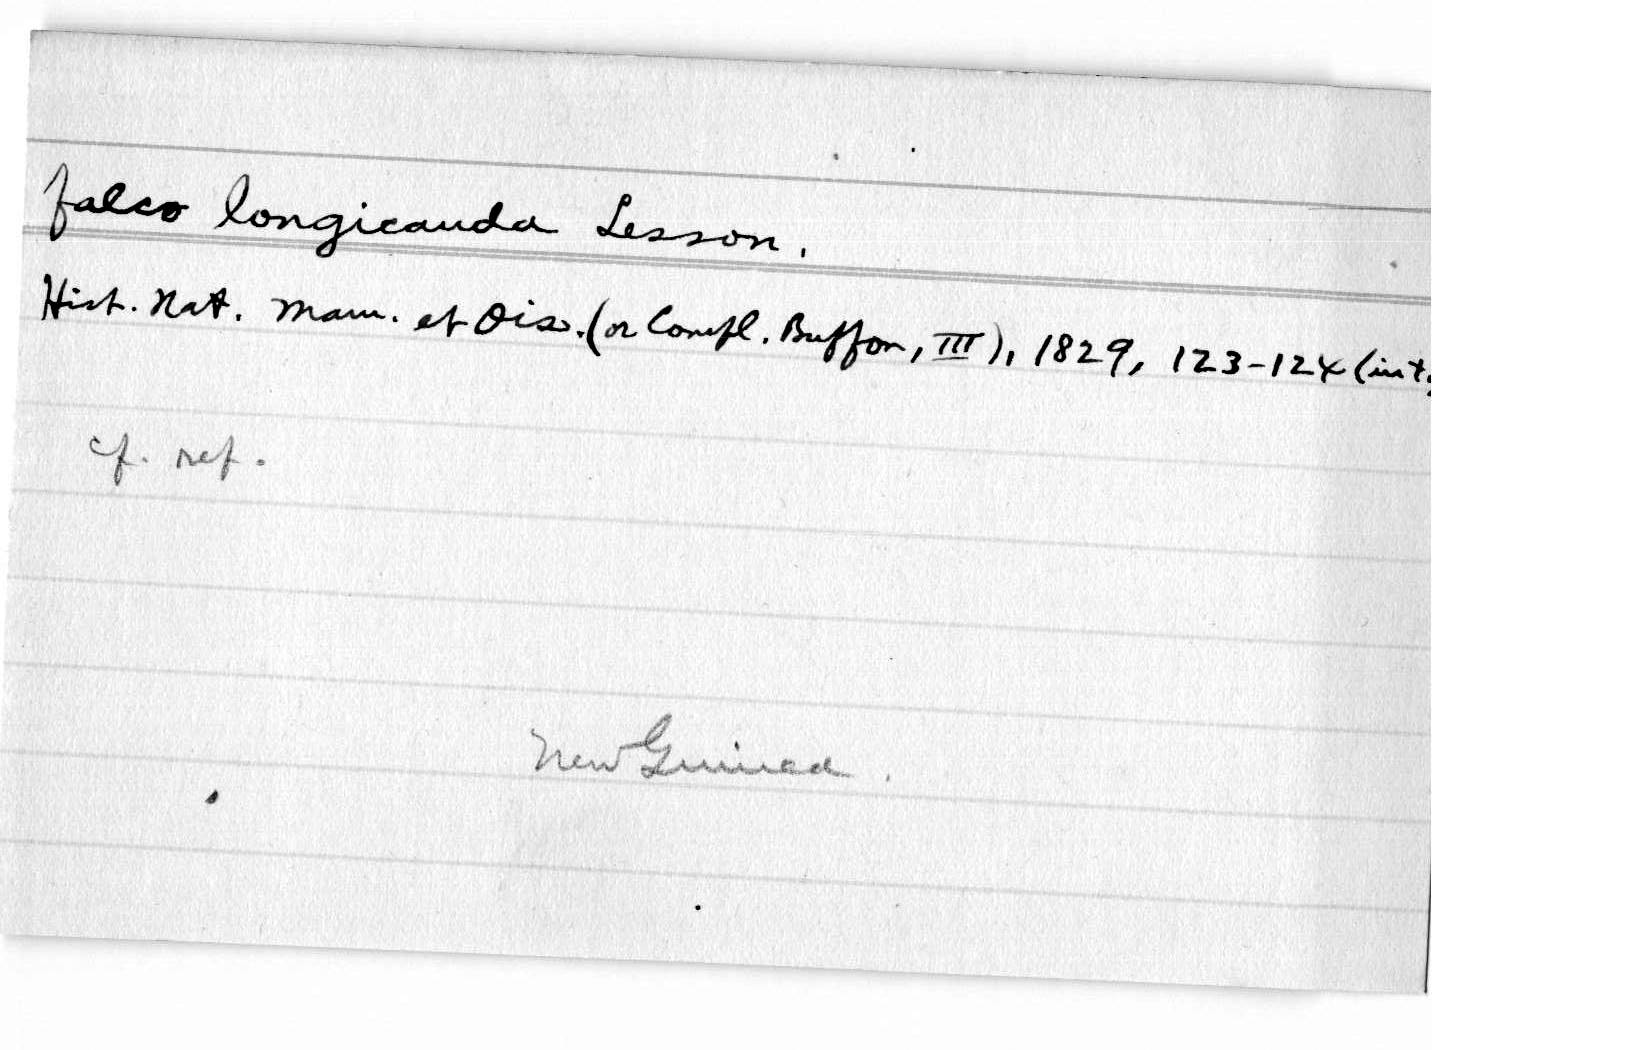 falco longicauda Lesson.
Hist. Nat. Mam. et Ois. (or Compl. Buffon, III), 1829, 123-124 (int.
cf. ref.
New Guinea.